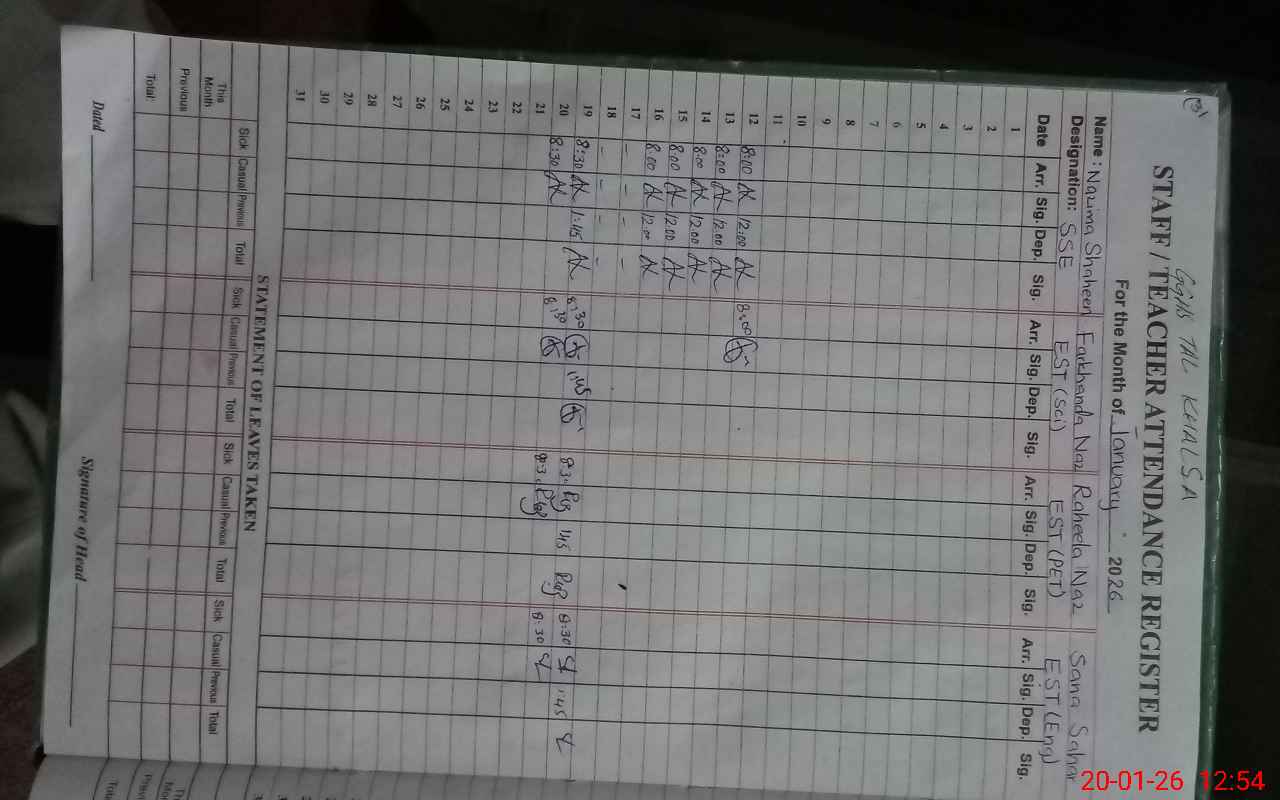 GGHS TAL KHALSA
STAFF / TEACHER ATTENDANCE REGISTER
For the Month of January 2026
Name : Nazima Shaheen Farkhanda Naz Raheela Naz Sana Sahar
Designation: SSE EST (Sci) EST (PET) EST (Eng)
Date Arr. Sig. Dep. Sig. Arr. Sig. Dep. Sig. Arr. Sig. Dep. Sig. Arr. Sig. Dep. Sig.
1
2
3
4
5
6
7
8
9
10
11
12 8:00 12:00 8:00
13 8:00 12.00
14 8:00 12.00
15 8:00 12.00
16 8.00 12.00
17 - - - -
18 - - - -
19 8:30 1:45 8:30 1:45 8:30 1:45 8:30 1:45
20 8:30 8:30 8:30 8:30
21
22
23
24
25
26
27
28
29
30
31
STATEMENT OF LEAVES TAKEN
Sick Casual Previous Total Sick Casual Previous Total Sick Casual Previous Total Sick Casual Previous Total
This Month
Previous
Total:
Dated Signature of Head
20-01-26 12:54